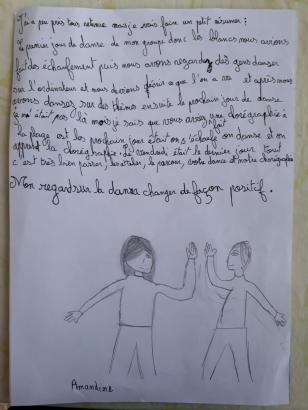 J'ai a peu près tous retenue mais je vais faire un petit résumer :
Le premier jour de danse de mon groupe donc les blancs nous avions
fait des échaufement puis nous avons regardez des gens danser
sur l'ordinateur et nous devions décrir ce que l'on a vu et après nous
avons danses sur des thèmes ensuite le prochain jour de danse
je n'était pas là mais je sais que vous avez fait une dorégraphie à
la plage est les prochain jour était on s'échaufe on danse et on
apprend la chorégraphie. Le vendredi était le dernier jour tout
c'est très bien passer, les atelier, le parcour, votre danse et notre chorégraphie
Mon regard sur la danse changer de façon positif.
Amandine